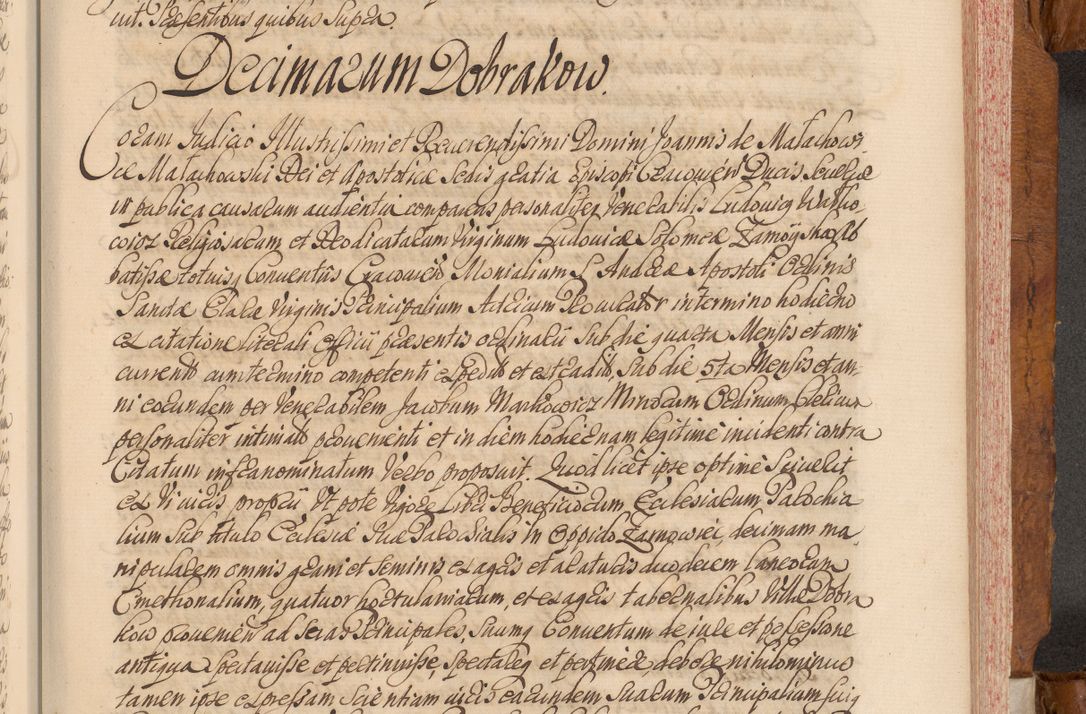 iut. Praesentibus quibus supra.
Decimarum Dobrakow.
Coram Judicio Illustrissimi et Reverendissimi Domini Joannis de Małachowi-
ce Małachowski Dei et Apostolicae Sedis gratia Episcopi Cracovien Ducis Severiae
in publica causarum audientia comparens personaliter Venerabilis Ludovicus
Religiosarum et Deo dicatarum Virginum Ludovicae Salomeae Zamoyska Ab
batissae totiusq Conventus Cracovien Monialium S Andreae Apostoli Ordinis
Sanctae Clarae Virginis Principalium Actricum Procurator in termino hodierno
ex citatione literali Officii praesentis ordinarii sub die quarta Mensis et anni
currentis cum termino competenti expedito et extradito, sub die 5ta Mensis et an-
ni eorundem per Venerabilem Jacobum Markowicz Minorum Ordinum Clericum
personaliter intimato provenienti et in diem hodiernam legitime incidenti contra
Citatum infranominatum Verbo proposuit. Quod licet ipse optime sciverit
ex Vi iuris proprii Ut pote Vigore Libri Beneficiorum Ecclesiarum Parochia
lium sub titulo Ecclesiae Parochialis in Oppido Zarnowiec, decimam ma
nipularem omnis grani et seminis ex agris et araturis duodecim laneorum
Cmethonalium, quatuor hortulaniarum, et ex agris tabernalibus Villae Dobra
kow provenien ad Principales, suumq Conventum de iure et possessione
antiqua spectavisse et pertinuisse, spectareq et pertinere debere nihilominus
tamen ipse expressam scientiam iuris earundem suarum Principalium suiq